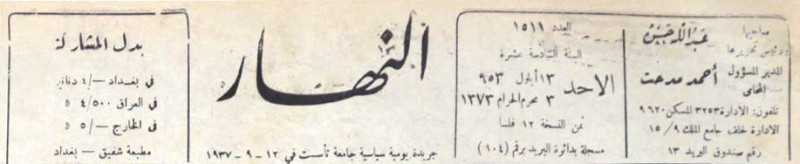 صاحبها
ورئيس تحريرها
عبدالله حسن
المدير المسؤول
المحامي
أحمد مدحت
تلفون: الادارة ٣٢٥٣ المسكن ٩٦٢٠
الادارة خلف جامع الملك ٩ / ١٥
رقم صندوق البريد ١٣
العدد ١٥١١
السنة السادسة عشرة
الاحد
١٣ أيلول ٩٥٣
٣ محرم الحرام ١٣٧٣
ثمن النسخة ١٢ فلسا
مسجلة بدائرة البريد برقم (١٠٤)
النهار
جريدة يومية سياسية جامعة تأسست في ١٢ - ٩ - ١٩٣٧
بدل المشاركة
في بغداد —/٤ دنانير
في العراق ٤/٥٠٠ »
في الخارج —/٥ »
مطبعة شفيق - بغداد